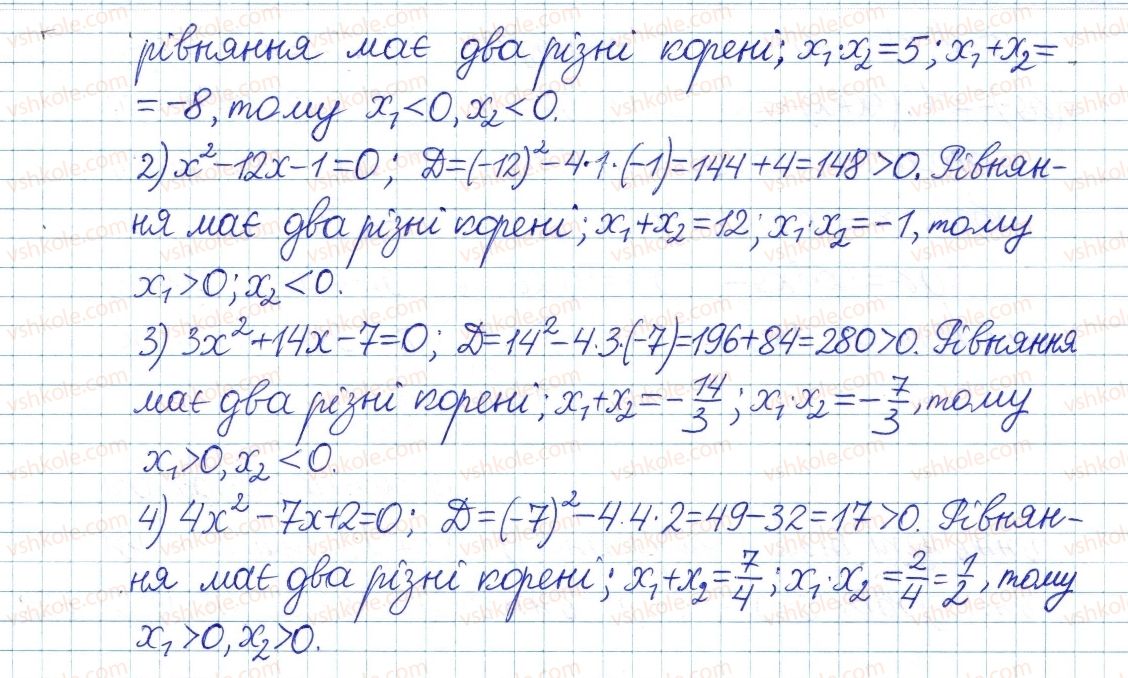 рівняння має два різні корені; x₁·x₂=5; x₁+x₂=
=-8, тому x₁<0, x₂<0.
2) x²-12x-1=0; Д=(-12)²-4·1·(-1)=144+4=148>0. Рівнян-
ня має два різні корені; x₁+x₂=12; x₁·x₂=-1, тому
x₁>0; x₂<0.
3) 3x²+14x-7=0; Д=14²-4·3·(-7)=196+84=280>0. Рівняння
має два різні корені; x₁+x₂=-14/3; x₁·x₂=-7/3, тому
x₁>0, x₂<0.
4) 4x²-7x+2=0; Д=(-7)²-4·4·2=49-32=17>0. Рівнян-
ня має два різні корені; x₁+x₂=7/4; x₁·x₂=2/4=1/2, тому
x₁>0, x₂>0.
vshkole.com